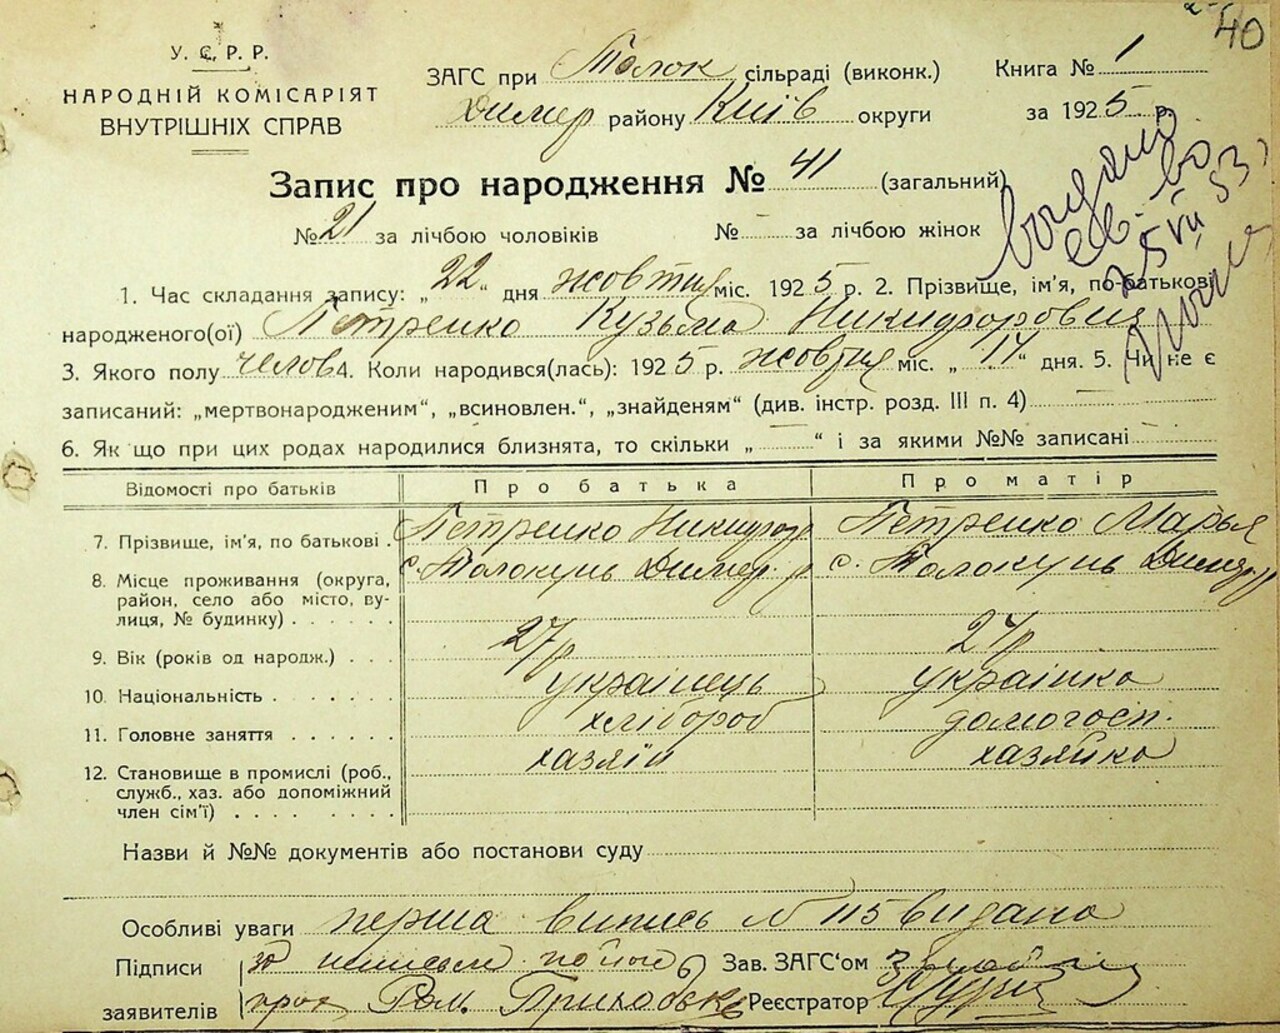 40
У. С. Р. Р.
НАРОДНІЙ КОМІСАРІЯТ
ВНУТРІШНІХ СПРАВ
ЗАГС при Толок сільраді (виконк.)
Димер району Київ округи
Книга № 1
за 1925 р.
Запис про народження № 41 (загальний)
№ 21 за лічбою чоловіків № - за лічбою жінок
видано
св-во
25 VII 53
1. Час складання запису: „22“ дня жовтня міс. 1925 р. 2. Прізвище, ім'я, по-батькові
народженого(ої) Петренко Кузьма Никифорович
3. Якого полу челов 4. Коли народився(лась): 1925 р. жовтня міс. „14“ дня. 5. Чи не є
записаний: „мертвонародженим“, „всиновлен.“, „знайденям“ (див. інстр. розд. III п. 4)
6. Як що при цих родах народилися близнята, то скільки „ — “ і за якими №№ записані
Відомості про батьків Про батька Про матір
7. Прізвище, ім'я, по батькові . Петренко Никифор Петренко Марья
8. Місце проживання (округа, с. Толокунь Димер. р с. Толокунь Димер. р
район, село або місто, ву-
лиця, № будинку) . . . . . .
9. Вік (років од народж.) . . . 27 р 24 р
10. Національність . . . . . . українець українка
11. Головне заняття . . . . . . хлібороб домогосп.
12. Становище в промислі (роб., хазяїн хазяйка
служб., хаз. або допоміжний
член сім'ї) . . . . . . . .
Назви й №№ документів або постанови суду
Особливі уваги перша випись № 115 видана
Підписи
заявителів
Зав. ЗАГС'ом
Ром. Приходько Реєстратор